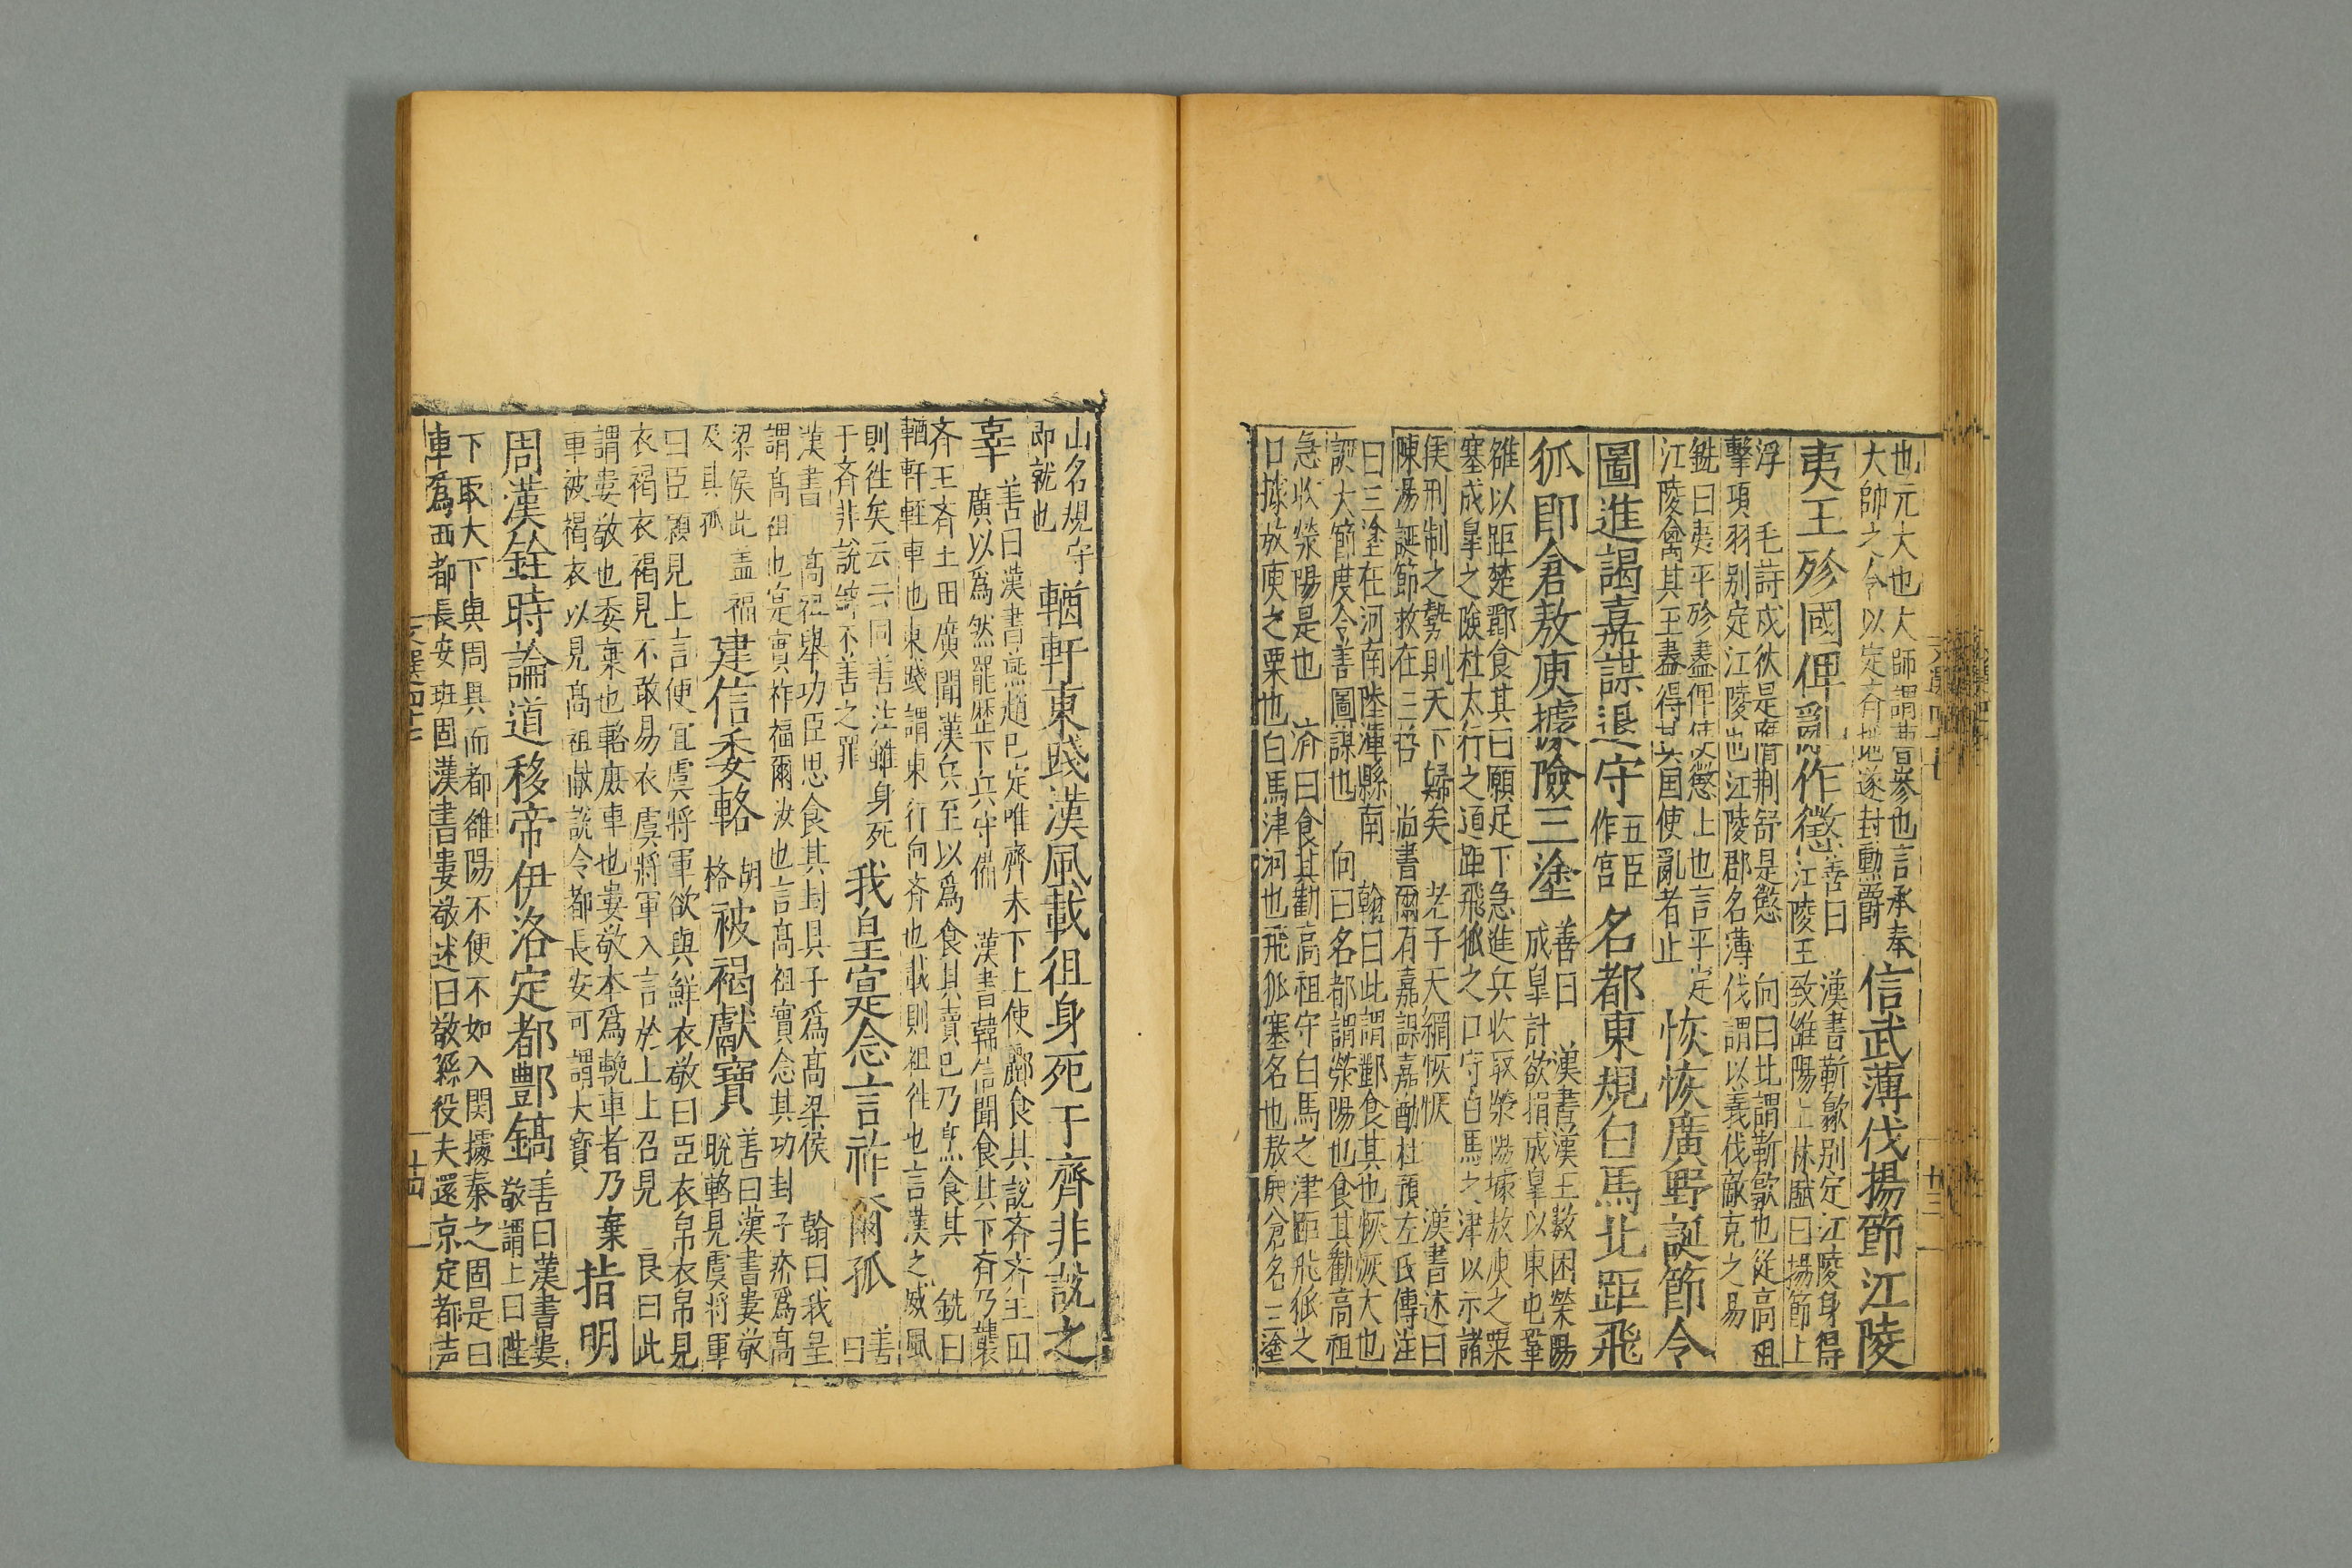 也元大也大師謂曹參也言承奉
大帥之令以定齊地遂封勲爵
信武薄伐揚節江陵
夷王殄國俾亂作懲
善曰　漢書靳歙別定江陵身得
江陵王致雒陽上林賦曰揚節上
浮　毛詩戎狄是膺荆舒是懲　向曰此謂靳歙也從高祖
擊項羽別定江陵也江陵郡名薄伐謂以義伐敵克之易
銑曰夷平殄盡俾使懲上也言平定
江陵禽其王盡得其国使亂者止
恢恢廣野誕節令
圖進謁嘉謀退守
五臣
作宫
名都東規白馬北距飛
狐即倉敖庾據險三塗
善曰　漢書漢王數困滎陽
成皐計欲捐成皐以東屯鞏
雒以距楚酈食其曰願足下急進兵收取滎陽據敖庾之粟
塞成皐之險杜太行之道距飛狐之口守白馬之津以示諸
侯刑制之勢則天下歸矣　老子天網恢恢　漢書述曰
陳湯誕節救在三哲　尚書爾有嘉謀嘉猷杜預左氏傳注
曰三塗在河南陸渾縣南　翰曰此謂酈食其也恢恢大也
誕大節度令善圖謀也　向曰名都謂滎陽也食其勸高祖
急收滎陽是也　濟曰食其勸高祖守白馬之津距飛狐之
口據敖庾之粟也白馬津河也飛狐塞名也敖庾倉名三塗
山名規守
即就也
輶軒東踐漢風載徂身死于齊非説之
辜
善曰漢書燕趙已定唯齊未下上使酈食其說齐齐王田
廣以爲然罷歴下兵守備　漢書韓信聞食其下齐乃襲
齐王齐王田廣聞漢兵至以爲食其賣已乃烹食其　銑曰
輶軒輕車也東踐謂東行向齐也載則徂徃也言漢之威風
則徃矣云云同善注雖身死
于齐非説辤不善之罪
我皇寔念言祚爾孤
善
曰
漢書　髙祖舉功臣思食其封其子疥爲髙梁侯　翰曰我皇
謂髙祖也寔實祚福爾汝也言髙祖實念其功封子疥爲髙
梁侯此蓋福
及其孤
建信委輅
胡
格
被褐獻寶
善曰漢書婁敬
脫輅見虞将軍
曰臣願見上言便宜虞将軍欲與鮮衣敬曰臣衣帛衣帛見
衣褐衣褐見不敢易衣虞將軍入言於上上召見　良曰此
謂婁敬也委棄也輅鹿車也婁敬本爲輓車者乃棄
車被褐衣以見髙祖献説令都長安可謂大寶
指明
周漢銓時論道移帝伊洛定都酆鎬
善曰漢書婁
敬謂上曰陛
下取大下與周異而都雒陽不便不如入関據秦之固是曰
車爲西都長安班固漢書婁敬述曰敬繇役夫還京定都声